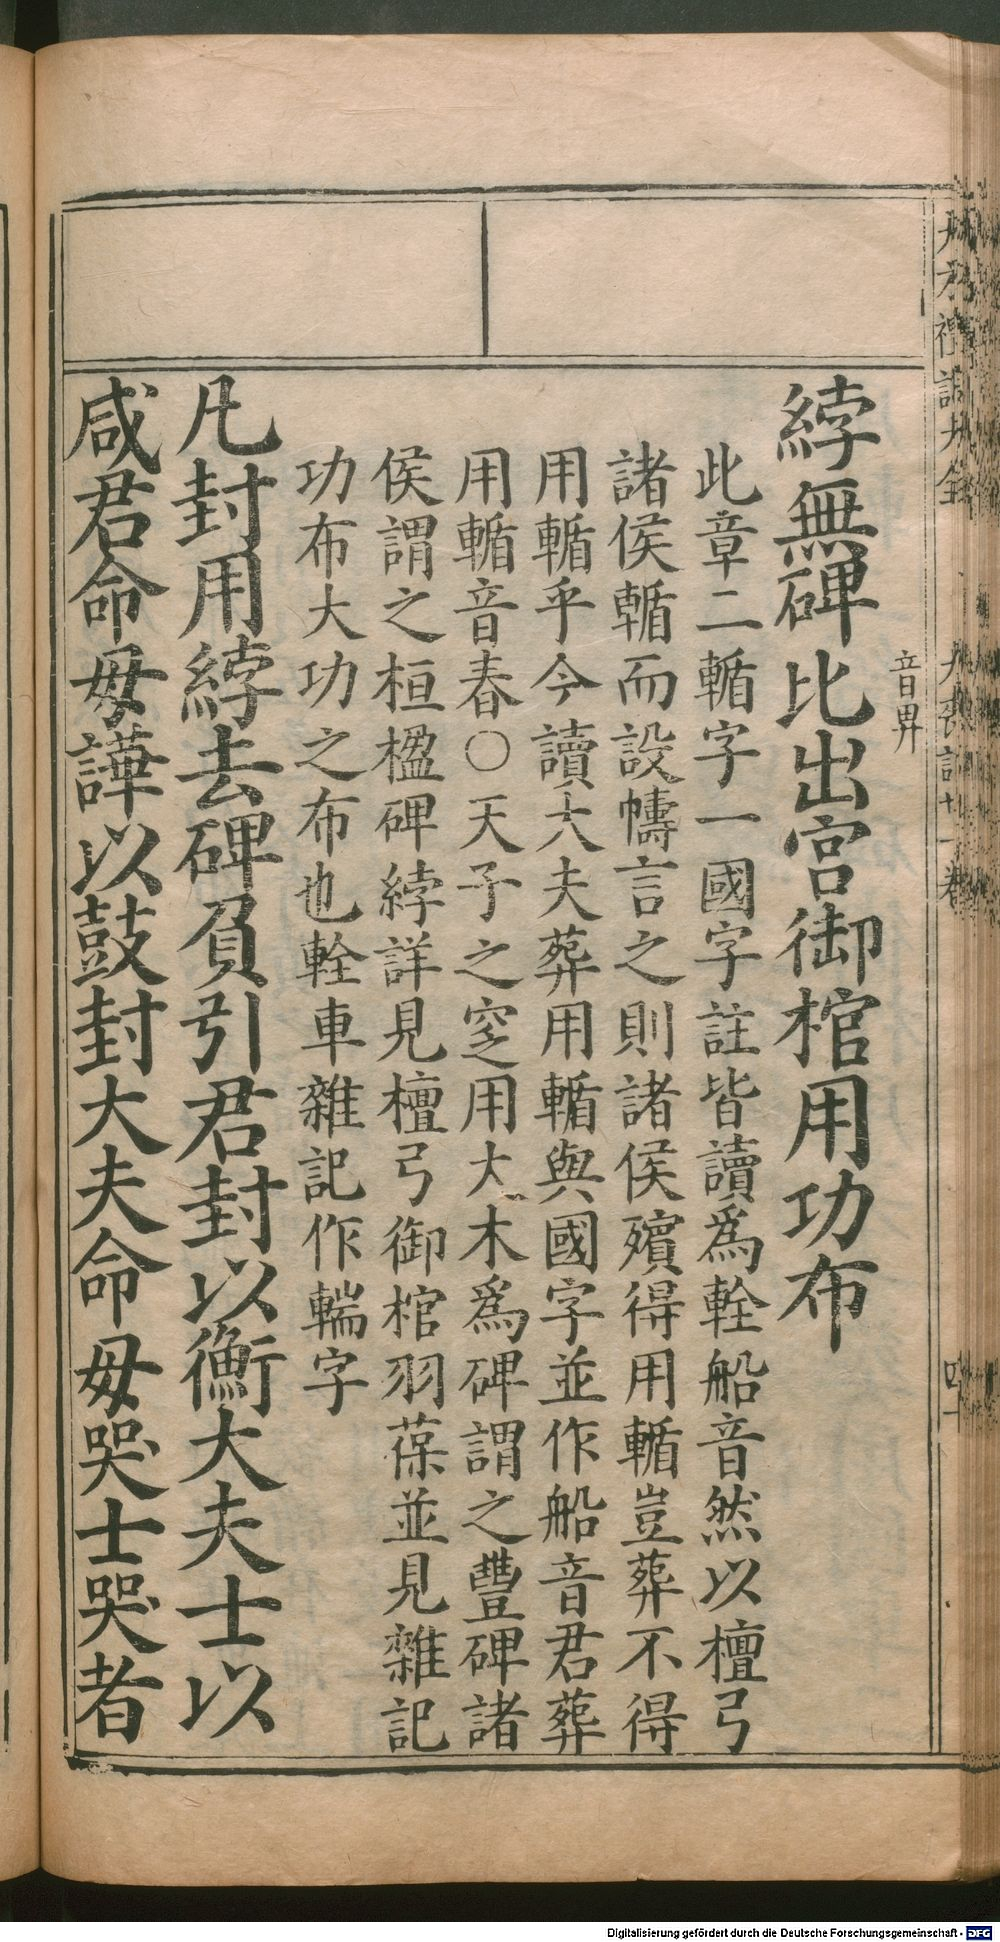 音畀
綍無碑比出宮御棺用功布
此章二輴字一國字註皆讀爲輇船音然以檀弓
諸侯輴而設幬言之則諸侯殯得用輴豈葬不得
用輴乎今讀大夫葬用輴與國字並作船音君葬
用輴音春○天子之窆用大木爲碑謂之豐碑諸
侯謂之桓楹碑綍詳見檀弓御棺羽葆並見雜記
功布大功之布也輇車雜記作輲字
凡封用綍去碑負引君封以衡大夫士以
咸君命毋譁以鼓封大夫命毋哭士哭者
Digitalisierung gefördert durch die Deutsche Forschungsgemeinschaft - DFG